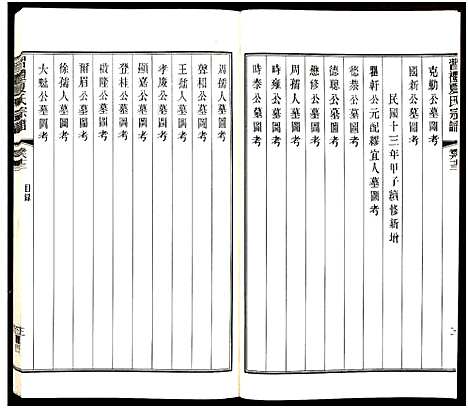 習禮夏氏宗譜
卷十三
克勤公墓圖考
國新公墓圖考
民國十三年甲子續修新增
軒公元配繆宜人墓圖考
德棻公墓圖考
德聰公墓圖考
懋修公墓圖考
時雍公墓圖考
時泰公墓圖考
周孺人墓圖考
聲桓公墓圖考
王孺人墓圖考
孝康公墓圖考
顯嘉公墓圖考
登桂公墓圖考
啟隆公墓圖考
爾眉公墓圖考
徐孺人墓圖考
大魁公墓圖考
習禮夏氏宗譜
卷十三
目錄